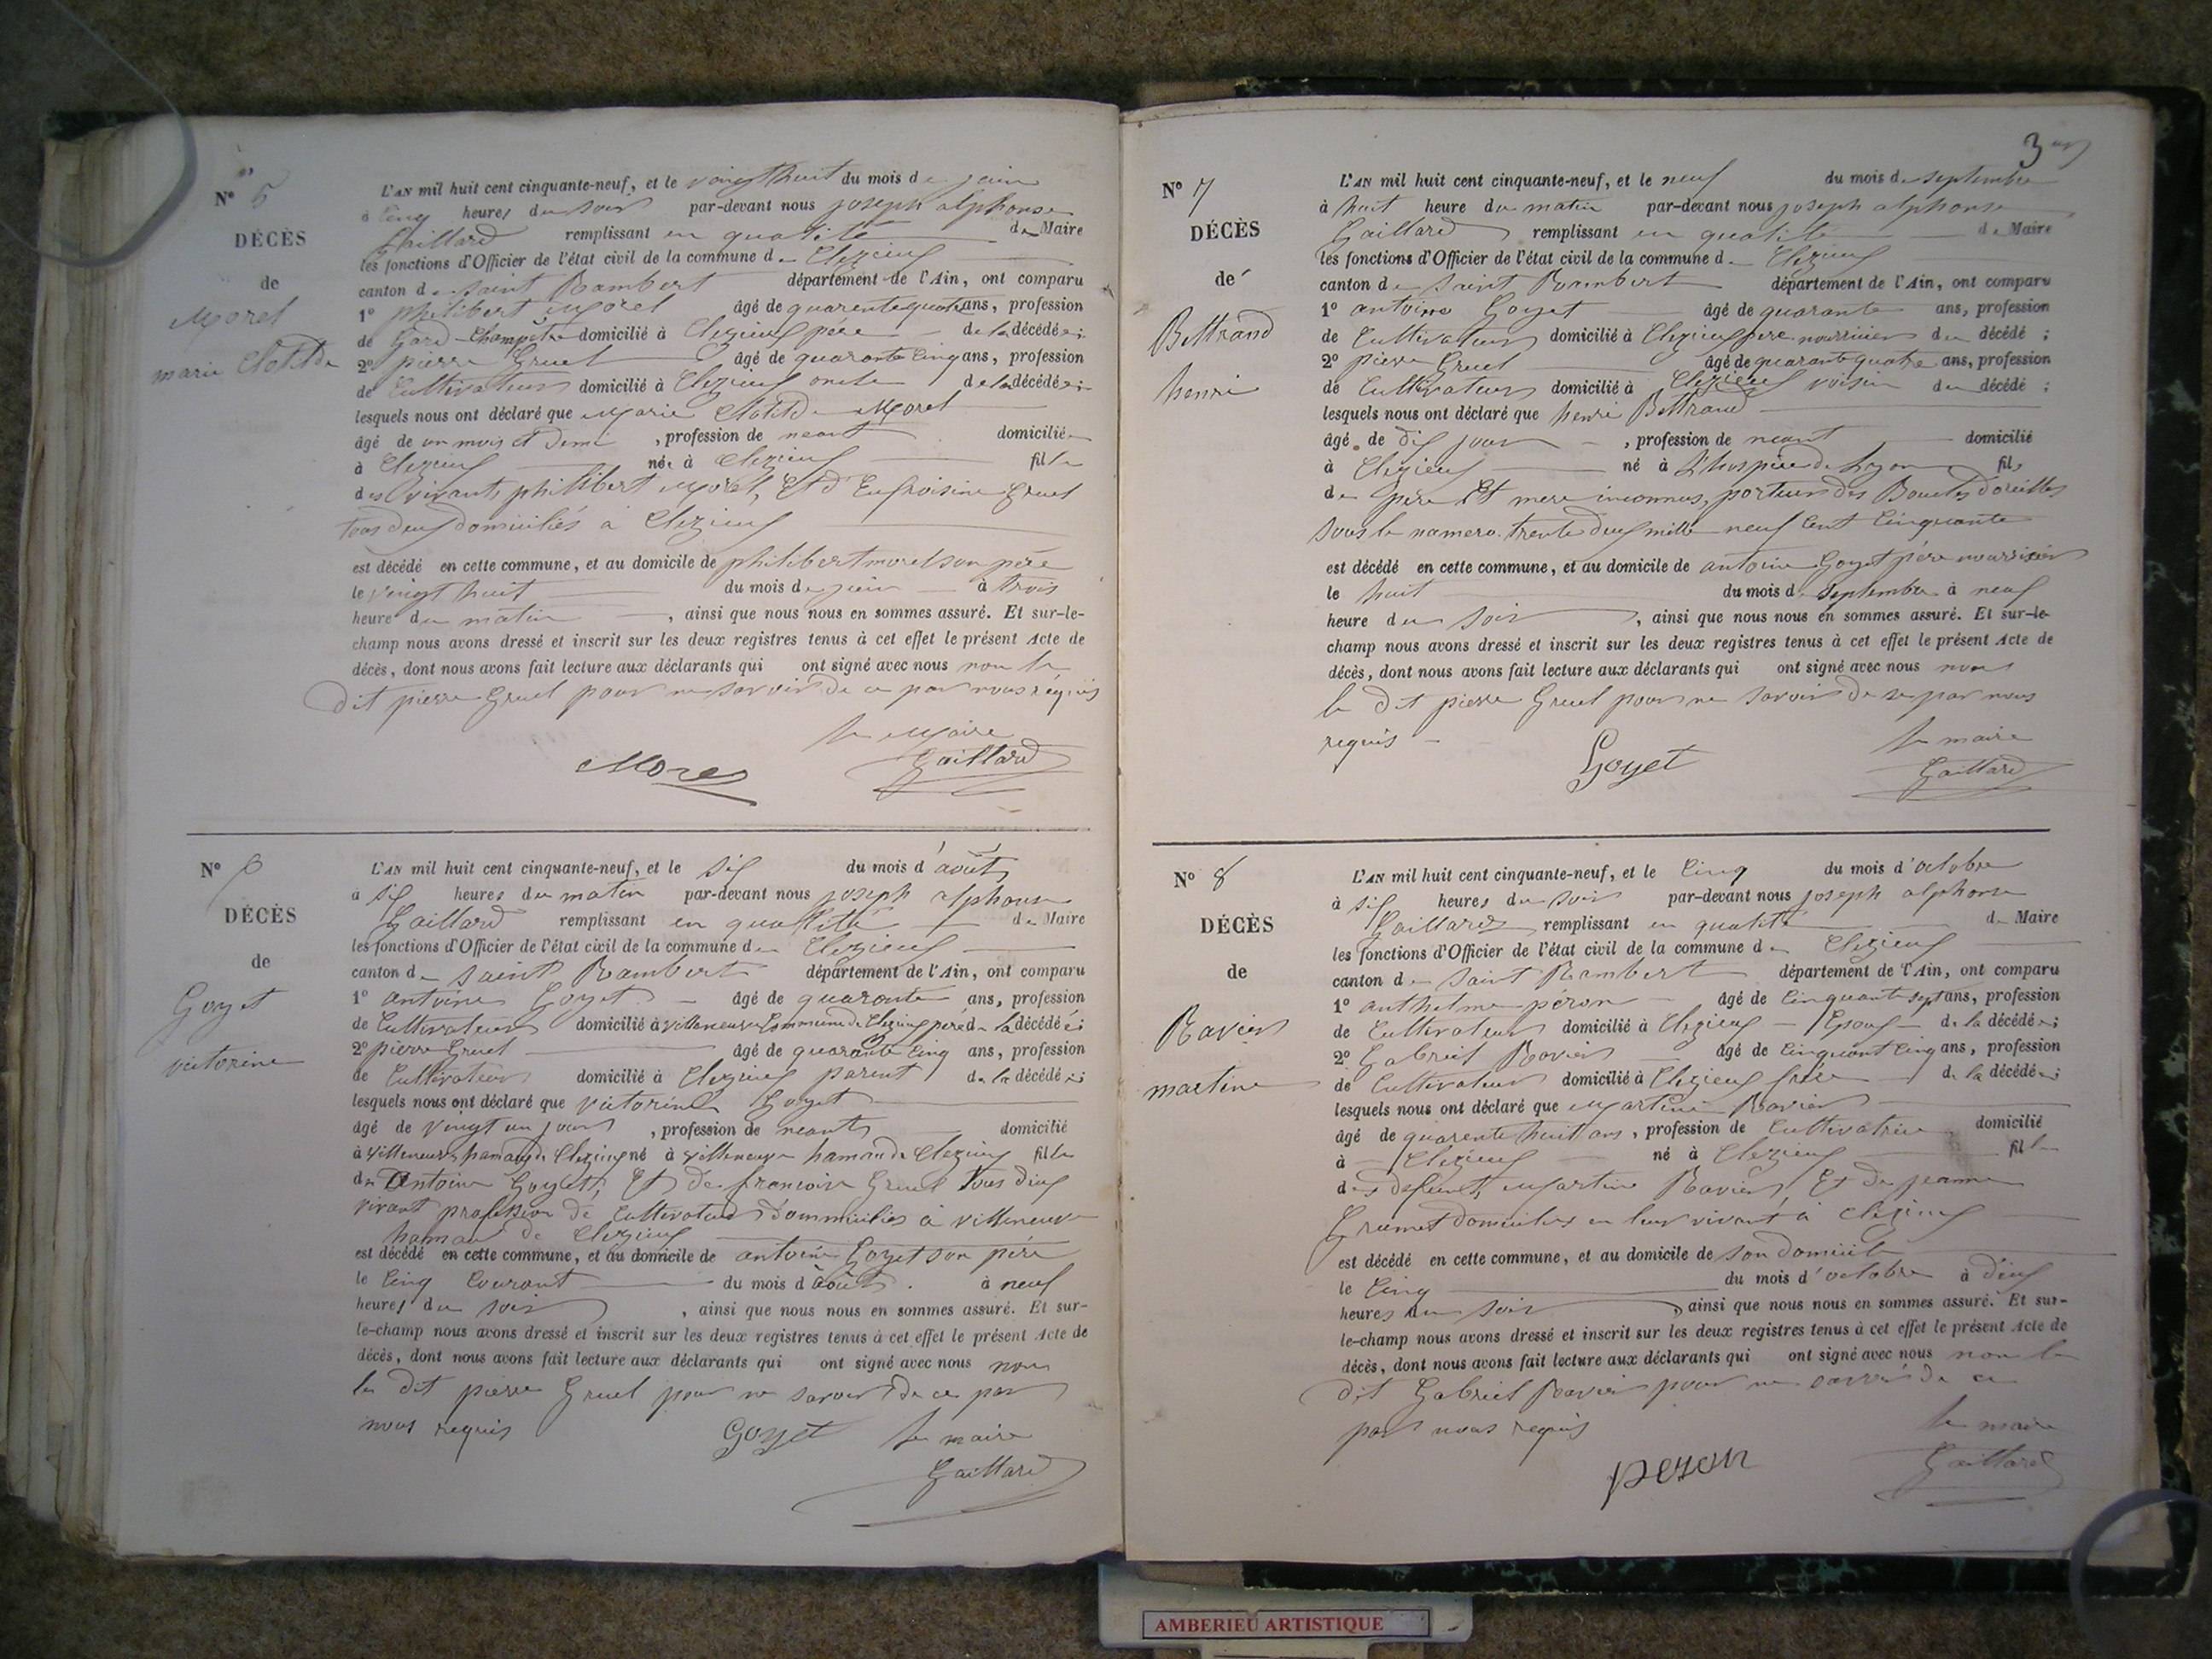 N° 5
DÉCÈS
de
Morel
marie Clotilde
L'AN mil huit cent cinquante-neuf, et le vingt huit du mois de juin
à cinq heures du soir par-devant nous joseph alphonse
Gaillard remplissant en qualité de Maire
les fonctions d'Officier de l'état civil de la commune de Clezieux
canton de saint Rambert département de l'Ain, ont comparu
1° philibert Morel âgé de quarente quatre ans, profession
de Gard-Champêtre domicilié à Clezieux père de la décédée;
2° pierre Gruel âgé de quarante cinq ans, profession
de Cultivateur domicilié à Clezieux oncle de la décédée;
lesquels nous ont déclaré que Marie Clotilde Morel
âgé de un mois et demi, profession de neant domiciliée
à Clezieux née à Clezieux fille
des vivants philibert Morel, Et d' Eufroisine Gruel
tous deux domiciliés à Clezieux
est décédé en cette commune, et au domicile de philibert morel son père
le vingt huit du mois de juin à trois
heure du matin, ainsi que nous nous en sommes assuré. Et sur-le-
champ nous avons dressé et inscrit sur les deux registres tenus à cet effet le présent Acte de
décès, dont nous avons fait lecture aux déclarants qui ont signé avec nous non le
dit pierre Gruel pour ne savoir de ce par nous réquis
le Maire
Morel Gaillard
N° 6
DÉCÈS
de
Goyet
victorine
L'AN mil huit cent cinquante-neuf, et le six du mois d'août
à six heures du matin par-devant nous joseph alphonse
Gaillard remplissant en quallité de Maire
les fonctions d'Officier de l'état civil de la commune de Clezieux
canton de saint Rambert département de l'Ain, ont comparu
1° antoine Goyet âgé de quarante ans, profession
de Cultivateur domicilié à villeneuve Commune de Clezieux père de la décédée;
2° pierre Gruel âgé de quarante cinq ans, profession
de Cultivateur domicilié à Clezieux parent de la décédée;
lesquels nous ont déclaré que victorine Goyet
âgé de vingt un jours, profession de neant domicilié
à villeneuve hamau de Clezieux né à villeneuve hamau de Clezieux fille
de Antoine Goyet, Et de francoise Gruel tous deux
vivant profession de Cultivateur dommiciliés à villeneuve
hamau de Clezieux
est décédé en cette commune, et au domicile de antoine Goyet son père
le cinq courant du mois d'août à neuf
heures du soir, ainsi que nous nous en sommes assuré. Et sur-
le-champ nous avons dressé et inscrit sur les deux registres tenus à cet effet le présent Acte de
décès, dont nous avons fait lecture aux déclarants qui ont signé avec nous non
le dit pierre Gruel pour ne savoir de ce par
nous requis
Goyet le maire
Gaillard
3
N° 7
DÉCÈS
de
Bettrand
henri
L'AN mil huit cent cinquante-neuf, et le neuf du mois de septembre
à huit heure du matin par-devant nous joseph alphonse
Gaillard remplissant en qualité de Maire
les fonctions d'Officier de l'état civil de la commune de Clezieux
canton de saint Rambert département de l'Ain, ont comparu
1° antoine Goyet âgé de quarante ans, profession
de Cultivateur domicilié à Clezieux pere nourricier du décédé;
2° pierre Gruel âgé de quarante quatre ans, profession
de Cultivateur domicilié à Clezieux voisin du décédé;
lesquels nous ont déclaré que henri Bettrand
âgé de dix jours, profession de neant domicilié
à Clezieux né à l'hospice de Lyon fils
de père Et mere inconnus, porteur des Boucles doreilles
sous le numero trente deux mille neuf cent cinquante
est décédé en cette commune, et au domicile de antoine Goyet père nourricier
le huit du mois de septembre à neuf
heure du soir, ainsi que nous nous en sommes assuré. Et sur-le-
champ nous avons dressé et inscrit sur les deux registres tenus à cet effet le présent Acte de
décès, dont nous avons fait lecture aux déclarants qui ont signé avec nous non
le dit pierre Gruel pour ne savoir de ce par nous
requis
le maire
Goyet Gaillard
N° 8
DÉCÈS
de
Ravier
martine
L'AN mil huit cent cinquante-neuf, et le cinq du mois d'octobre
à six heures du soir par-devant nous joseph alphonse
Gaillard remplissant en qualité de Maire
les fonctions d'Officier de l'état civil de la commune de Clezieux
canton de saint Rambert département de l'Ain, ont comparu
1° anthelme péron âgé de cinquante sept ans, profession
de Cultivateur domicilié à Clezieux Epoux de la décédée;
2° Gabriel Ravier âgé de cinquant cinq ans, profession
de Cultivateur domicilié à Clezieux frère de la décédée;
lesquels nous ont déclaré que Martine Ravier
âgé de quarente huit ans, profession de Cultivatrice domicilié
à Clezieux né à Clezieux fille
des defunt, Martine Ravier Et de jeanne
Grumet domiciliés en leur vivant à Clezieux
est décédé en cette commune, et au domicile de son domicile
le cinq du mois d'octobre à deux
heures du soir, ainsi que nous nous en sommes assuré. Et sur-
le-champ nous avons dressé et inscrit sur les deux registres tenus à cet effet le présent Acte de
décès, dont nous avons fait lecture aux déclarants qui ont signé avec nous non le
dit Gabriel Ravier pour ne savoir de ce
par nous requis
le maire
peron Gaillard
AMBERIEU ARTISTIQUE